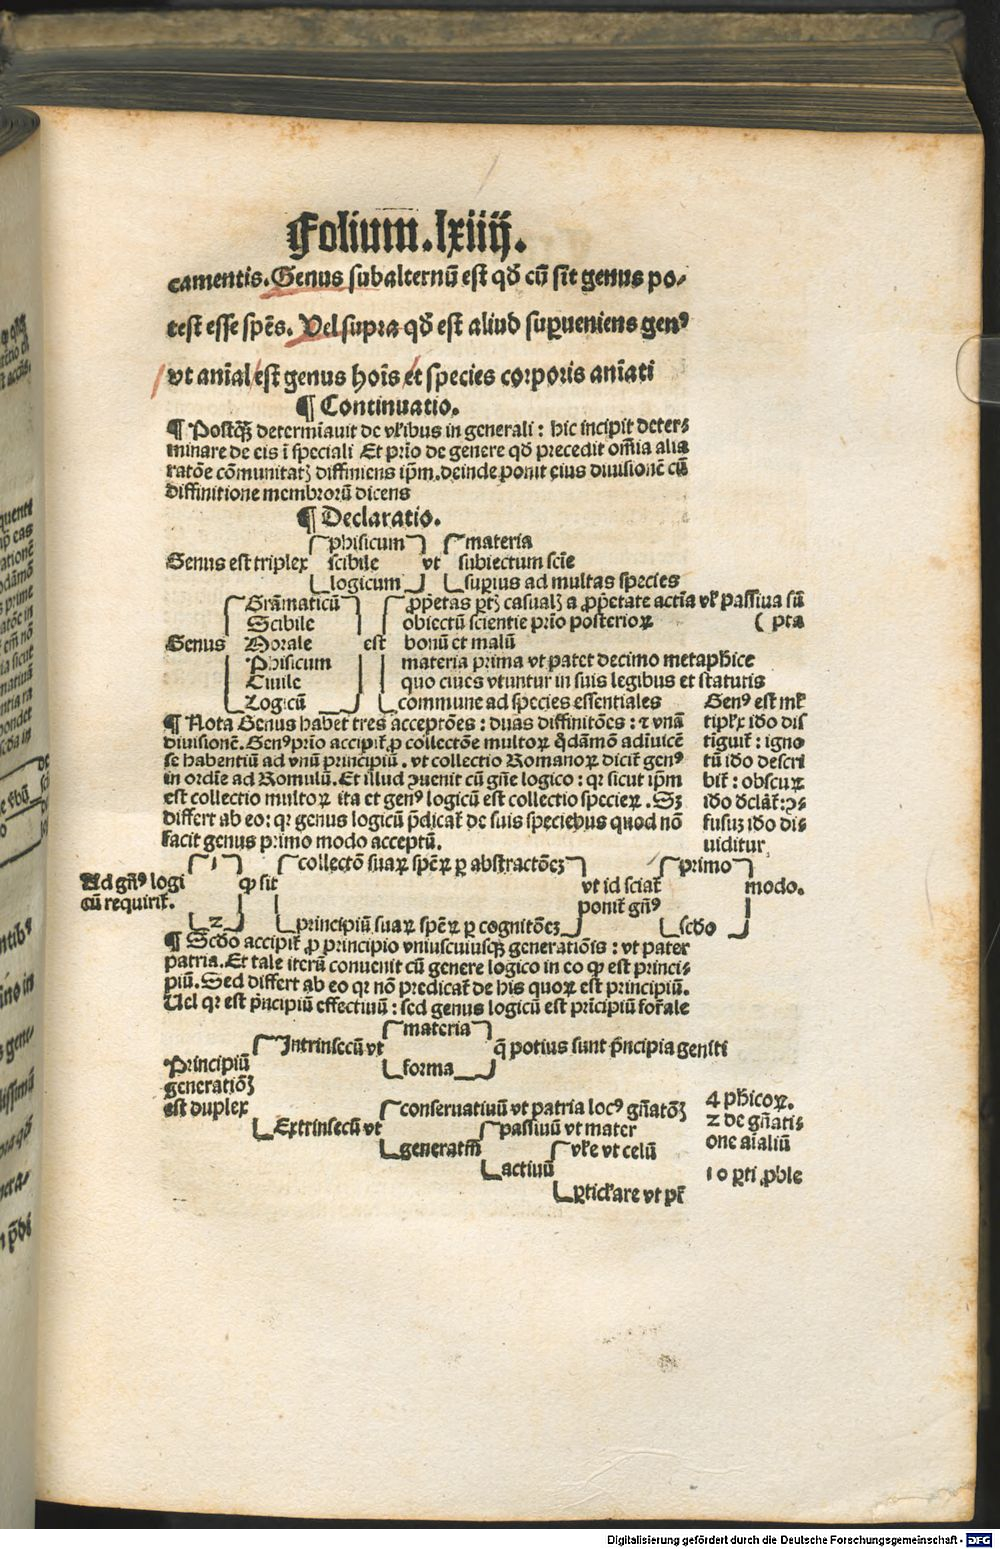 Folium.lxiiij.
camentis. Genus subalternū est qđ cū sit genus po-
test esse spēs. Vel supra qđ est aliud supueniens genꝰ
vt anīal est genus hoīs et species corporis anīati
¶ Continuatio.
¶ Postq̃ʒ determīauit de vl̄ibus in generali : hic incipit deter-
minare de eis ī speciali Et prīo de genere qđ precedit om̄ia alia
ratōe cōmunitatꝭ diffiniens ip̄m. deinde ponit eius diuisionē cū
diffinitione membrorū dicens
¶ Declaratio.
phisicum materia
Genus est triplex scibile vt subiectum scīe
logicum supius ad multas species
Grāmaticū ꝓpetas ꝑtꝭ casualꝭ a ꝓpetate actīa vl̄ passiua sū
Scibile obiectū scientie prīo posterioꝝ ( pta
Genus Morale est bonū et malū
Phisicum materia prima vt patet decimo metaph̄ice
Ciuile quo ciues vtuntur in suis legibus et statutis
Logicū commune ad species essentiales
¶ Nota Genus habet tres acceptōes : duas diffinitōes : ⁊ vnā
diuisionē. Genꝰ prīo accipit̄ ꝓ collectōe multoꝝ q̄dāmō adīuicē
se habentiū ad vnū principiū . vt collectio Romanoꝝ dicit̄ genꝰ
in ordīe ad Romulū. Et illud ꝯuenit cū gn̄e logico : qꝛ sicut ip̄m
est collectio multoꝝ ita et genꝰ logicū est collectio specieꝝ . Sꝫ
differt ab eo : qꝛ genus logicū p̄dicat̄ de suis speciebus quod nō
facit genus primo modo acceptū.
Genꝰ est ml̄
tiplex iđo dis
tiguit̄ : igno
tū iđo descri
bit̄ : obscuꝝ
iđo đclāt̄ : ꝯ-
fusuꝫ iđo di-
uiditur
1 collectō suaꝝ spēꝝ ꝑ abstractōeꝫ primo
Ad gn̄ꝰ logi ꝙ sit vt id sciat̄ modo.
cū requirit̄. ponit̄ gn̄ꝰ
2 principiū suaꝝ spēꝝ ꝑ cognitōeꝫ scđo
¶ Scđo accipit̄ ꝓ principio vniuscuiusqꝫ generatiōis : vt pater
patria. Et tale iterū conuenit cū genere logico in eo ꝙ est princi-
piū. Sed differt ab eo qꝛ nō predicat̄ de his quoꝝ est principiū.
Uel qꝛ est p̄ncipiū effectiuū : sed genus logicū est prīcipiū for̄ale
materia
Intrinsecū vt q̄ potius sunt p̄ncipia geniti
forma
Principiū
generatiōꝫ
est duplex
conseruatiuū vt patria locꝰ gn̄atōꝫ
Extrinsecū vt passiuū vt mater
generatīū vl̄e vt celū
actiuū
ꝑticl̄are vt pr̄
4 ph̄icoꝝ.
2 de gn̄ati-
one aīaliū
10 ꝑti ꝓble
Digitalisierung gefördert durch die Deutsche Forschungsgemeinschaft - DFG